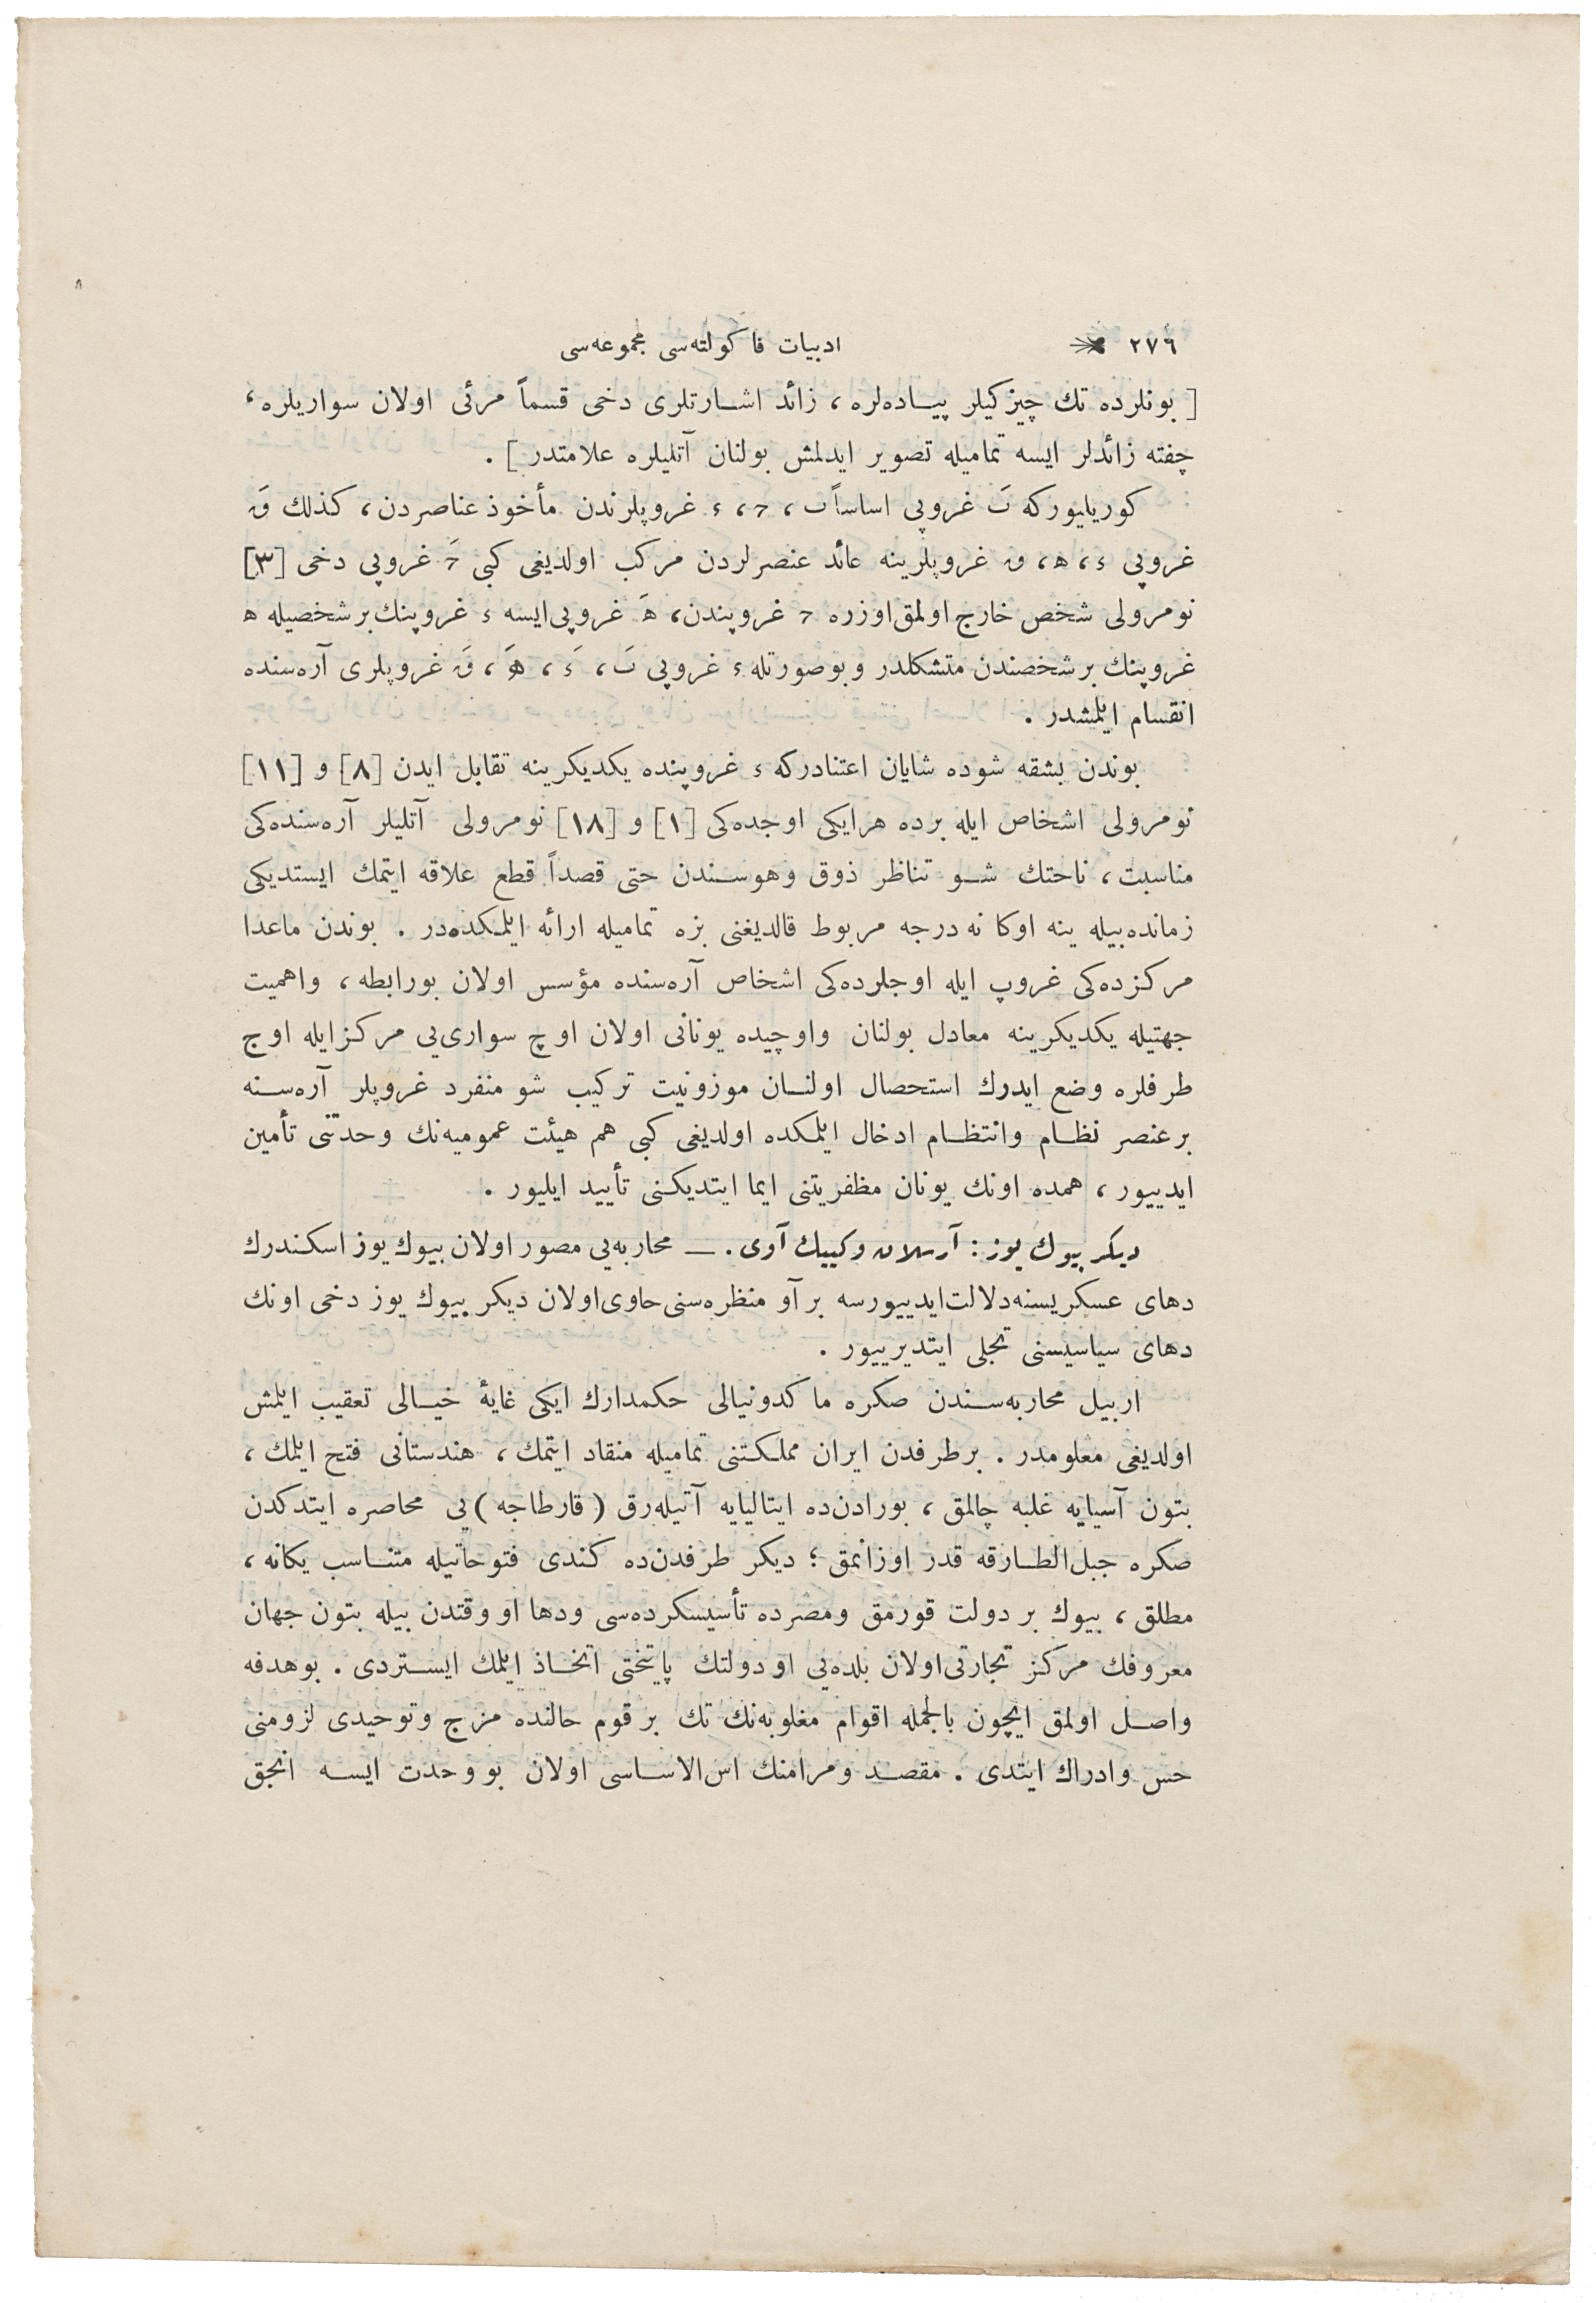 ٢٧٦ ادبیات فاكولته‌سی مجموعه‌سی
[ بونلرده تك چیزكیلر پیـاده‌لره ، زائد اشـارتلری دخی قسماً مرئی اولان سواریلره ،
چفته زائدلر ایسه تمامیله تصویر ایدلمش بولنان آتلیلره علامتدر ] .
كوریلیوركه بَ غروپی اساساً ب ، ح ، ء غروپلرندن مأخوذ عناصردن ، كذلك وَ
غروپی ء ، ه ، و غروپلرینه عائد عنصرلردن مركب اولدیغی كبی حَ غروپی دخی [٣]
نومرولی شخص خارج اولمق اوزره ح غروپندن ، هَ غروپی ایسه ء غروپنك بر شخصیله ه
غروپنك بر شخصندن متشكلدر و بو صورتله ء غروپی بَ ، ءَ ، هَ ، وَ غروپلری آره‌سنده
انقسام ایلمشدر .
بوندن بشقه شوده شایان اعتنادركه ء غروپنده یكدیكرینه تقابل ایدن [٨] و [١١]
نومرولی اشخاص ایله برده هرایكی اوجده‌كی [١] و [١٨] نومرولی آتلیلر آره‌سنده‌كی
مناسبت ، ناحتك شـو تناظر ذوق وهوسـندن حتی قصداً قطع علاقه ایتمك ایستدیكی
زمانده‌بیله ینه اوكا نه درجه مربوط قالدیغنی بزه تمامیله ارائه ایلمكده‌در . بوندن ماعدا
مركزده‌كی غروپ ایله اوجلرده‌كی اشخاص آره‌سنده مؤسس اولان بورابطه ، واهمیت
جهتیله یكدیكرینه معادل بولنان واوچیده یونانی اولان اوچ سواری‌یی مركزایله اوج
طرفلره وضع ایدرك استحصال اولنـان موزونیت تركیب شو منفرد غروپلر آره‌سـنه
برعنصر نظـام وانتظـام ادخال ایلمكده اولدیغی كبی هم هیئت عمومیه‌نك وحدتنی تأمین
ایدییور ، همده اونك یونان مظفریتنی ایما ایتدیكنی تأیید ایلیور .
دیكر بیوك یوز : آرسلان وكییك آوی . — محاربه‌یی مصور اولان بیوك یوز اسكندرك
دهای عسكریسنه دلالت ایدییورسه بر آو منظره‌سنی حاوی اولان دیكر بیوك یوز دخی اونك
دهای سیاسیسنی تجلی ایتدیرییور .
اربیل محاربه‌سـندن صكره ماكدونیالی حكمدارك ایكی غایهٔ خیـالی تعقیب ایلمش
اولدیغی معلومدر . برطرفدن ایران مملكتنی تمامیله منقاد ایتمك ، هندستانی فتح ایلمك ،
بتون آسیایه غلبه چالمق ، بورادن‌ده ایتالیایه آتیله‌رق ( قارطاجه ) یی محاصره ایتدكدن
صكره جبل‌الطـارقه قدر اوزانمق ؛ دیكر طرفدن‌ده كندی فتوحاتیله متنـاسب یكانه ،
مطلق ، بیوك بر دولت قورمق ومصرده تأسیسكرده‌سی ودها او وقتدن بیله بتون جهان
معروفك مركز تجارتی‌اولان بلده‌یی او دولتك پایتختی اتخـاذ ایلمك ایسـتردی . بوهدفه
واصـل اولمق ایچون بالجمله اقوام مغلوبه‌نك تك بر قوم حالنده مزج وتوحیدی لزومنی
حس وادراك ایتدی . مقصـد ومرامنك اس‌الاسـاسی اولان بو وحدت ایسـه انجق